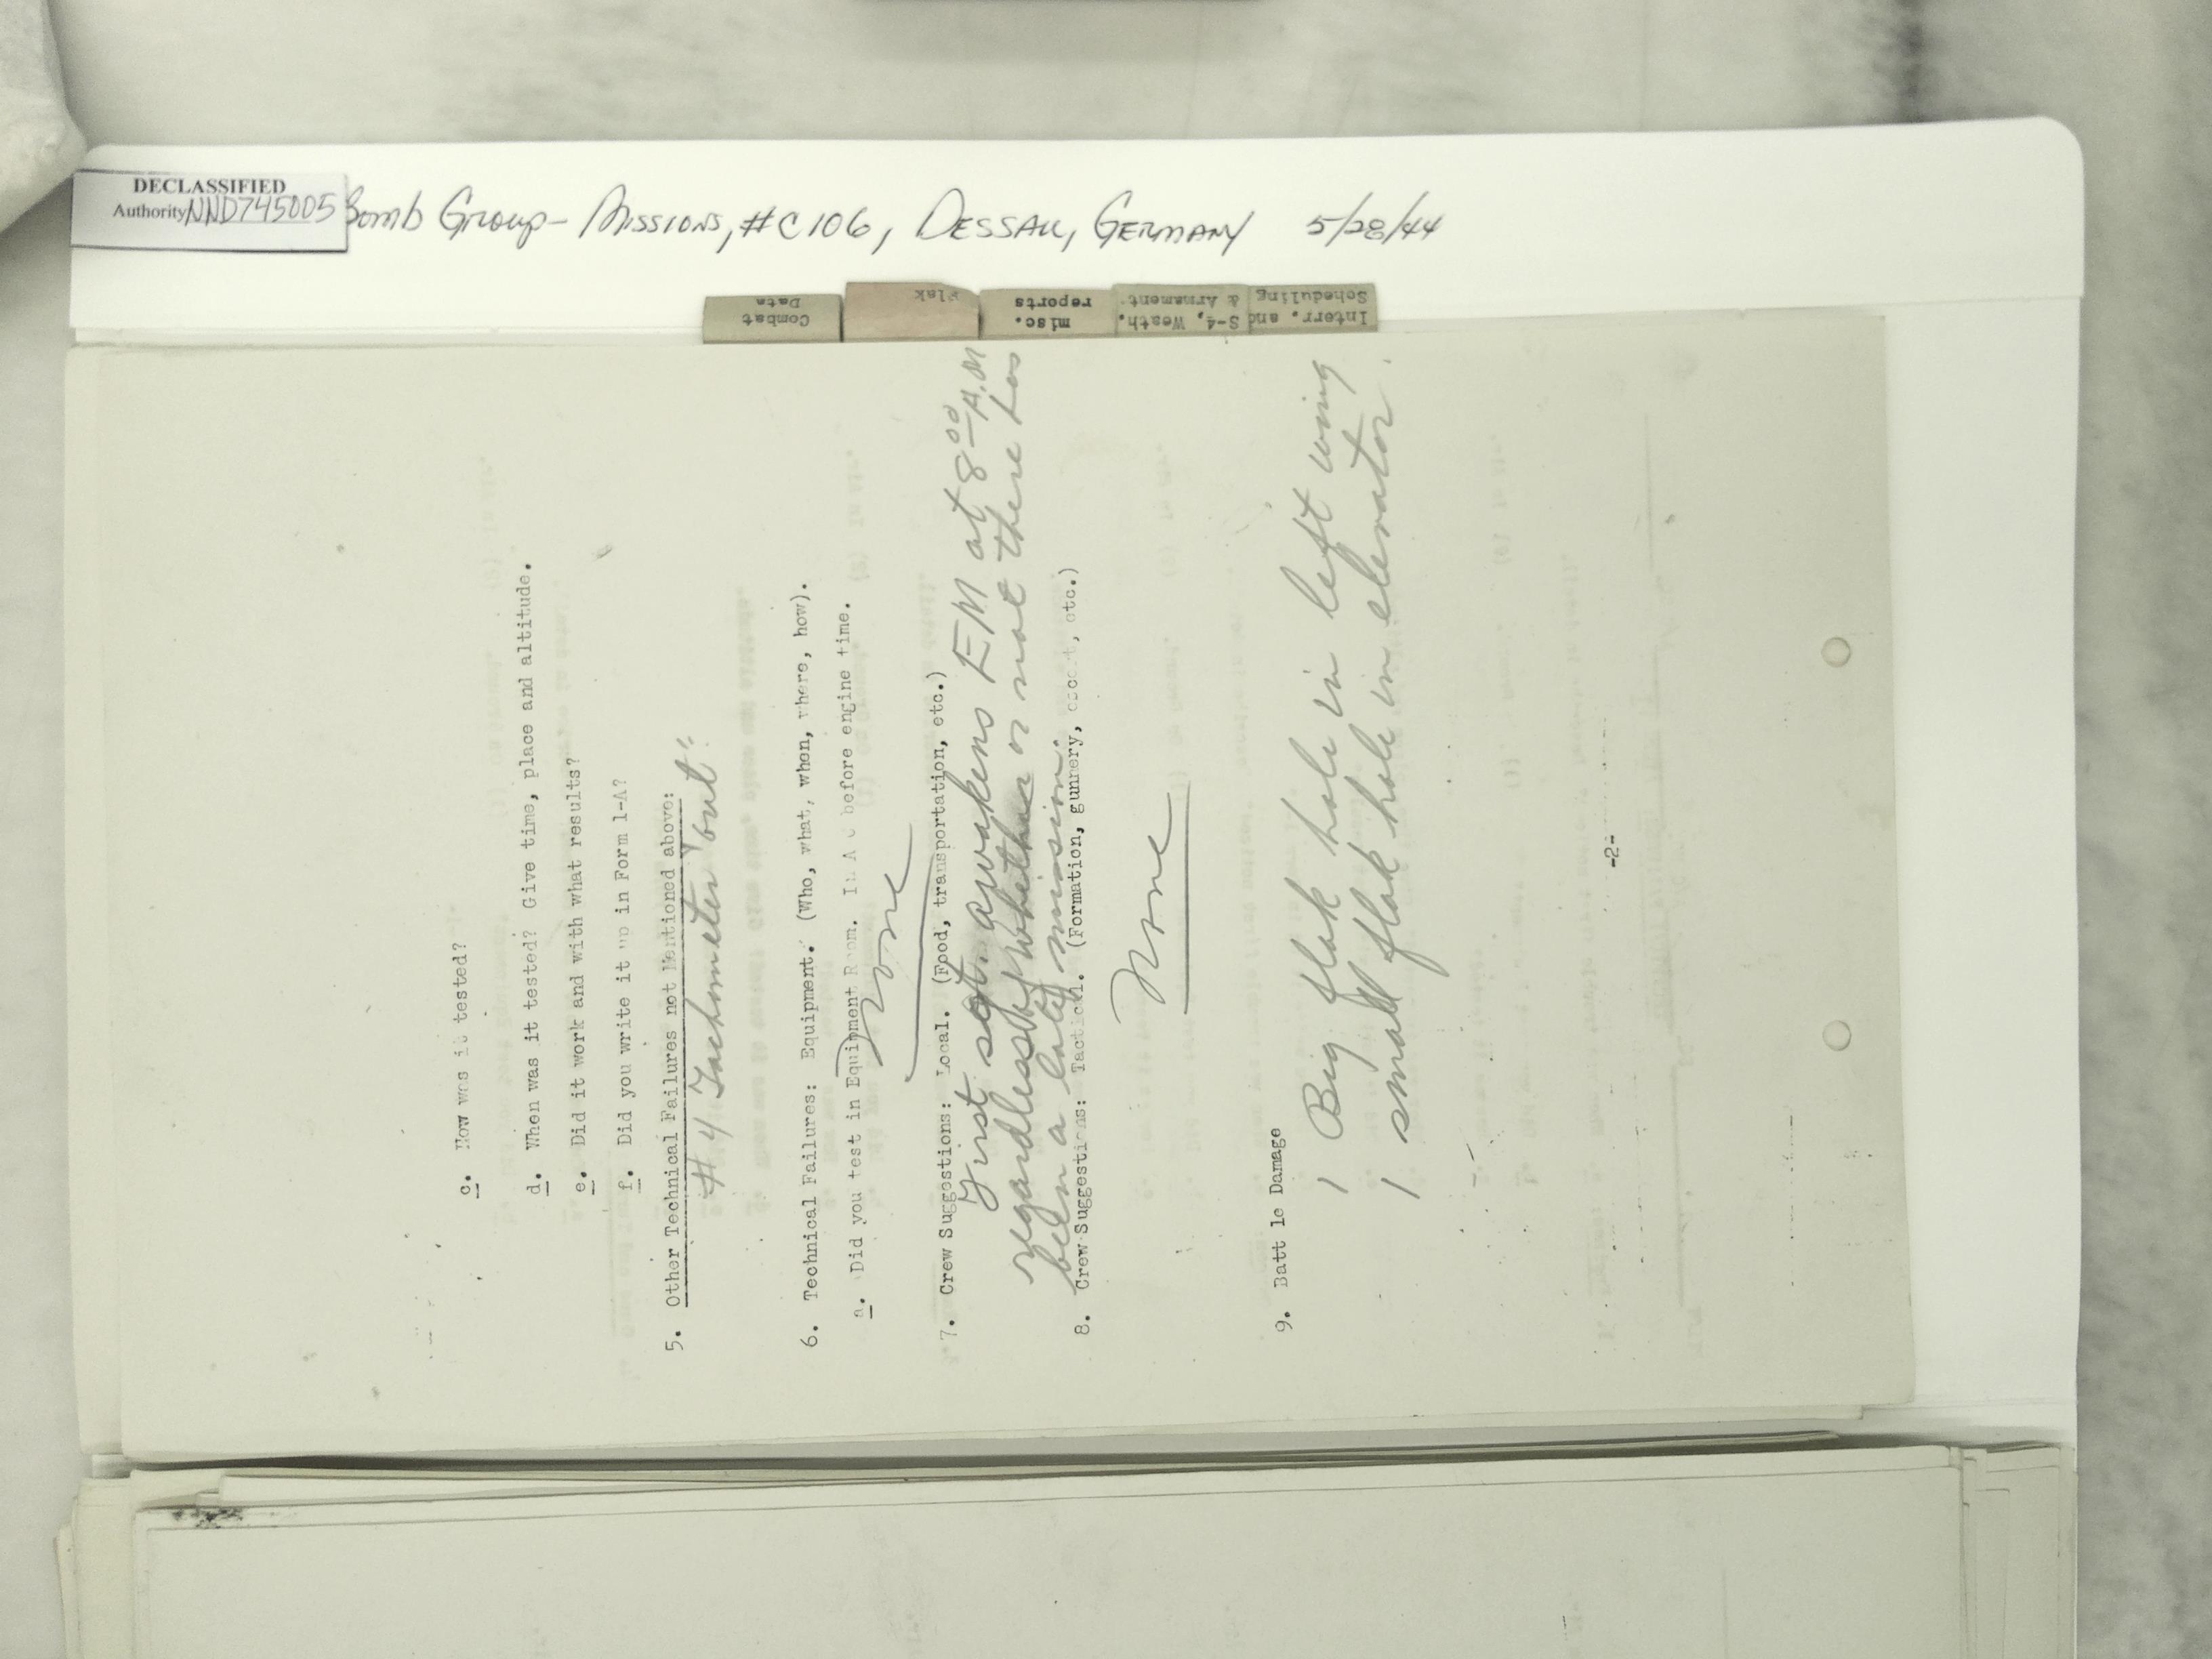 DECLASSIFIED
Authority NND745005
Bomb Group - Missions, #C106, Dessau, Germany 5/28/44
Combat Data
Flak
misc. reports
S-4, Weath. & Armament
Interr. and Scheduling
c. How was it tested?
d. When was it tested? Give time, place and altitude.
e. Did it work and with what results?
f. Did you write it up in Form 1-A?
5. Other Technical Failures not Mentioned above:
#4 Tachometer "out"
6. Technical Failures: Equipment. (Who, what, when, where, how).
a. Did you test in Equipment Room. In A/C before engine time.
None
7. Crew Suggestions: Local. (Food, transportation, etc.)
First sgt. awakens EM at 8:00 A.M
regardless of whether or not there has
been a late mission.
8. Crew Suggestions: Tactical. (Formation, gunnery, escort, etc.)
None
9. Batt le Damage
1 Big flak hole in left wing
1 small flak hole in elevator.
-2-